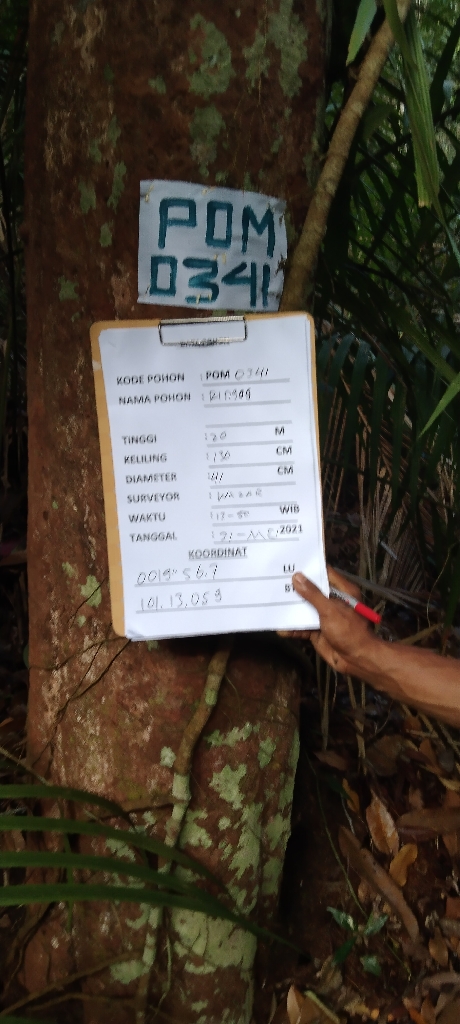 POM
0341
KODE POHON : POM 0341
NAMA POHON :
TINGGI : 20 M
KELILING : 130 CM
DIAMETER : 41 CM
SURVEYOR :
WAKTU : WIB
TANGGAL : 2021
KOORDINAT
0019° 56.7 LU
101. 13,053